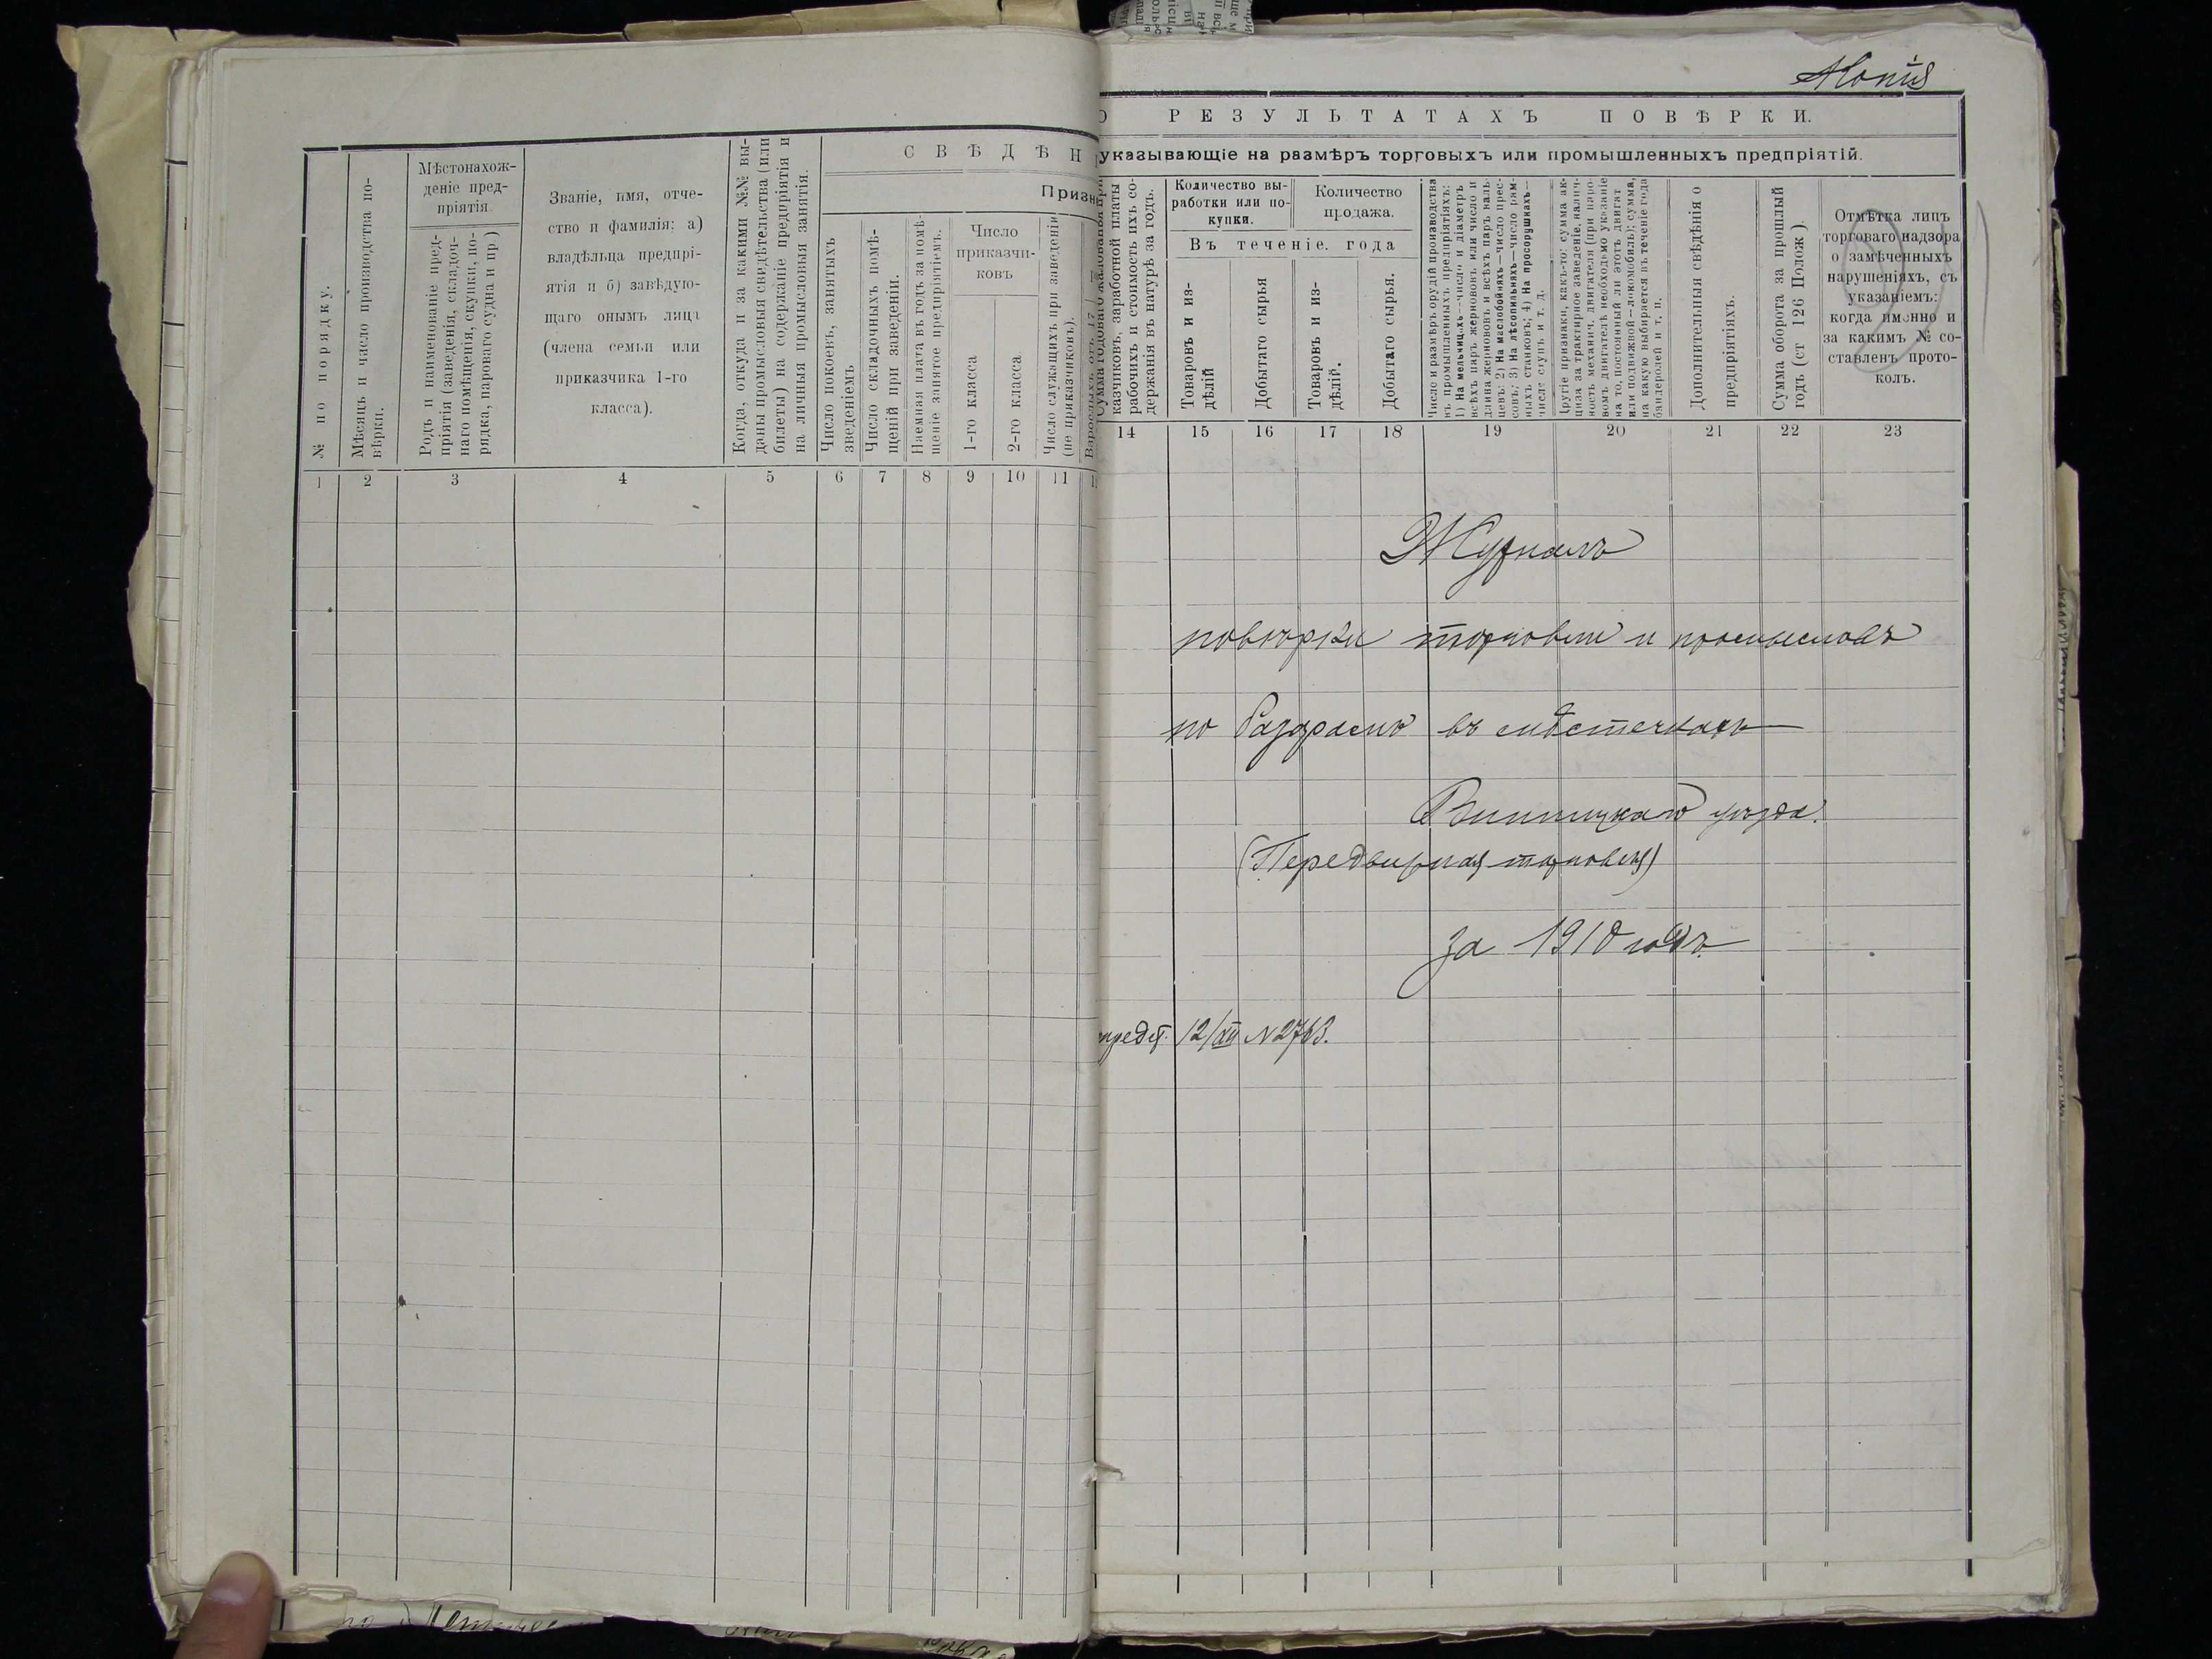 Копія
О РЕЗУЛЬТАТАХЪ ПОВѢРКИ.
СВѢДѢН
указывающіе на размѣръ торговыхъ или промышленныхъ предпріятій.
Призн
№ по порядку.
Мѣсяцъ и число производства по-
вѣрки.
Мѣстонахож-
деніе пред-
пріятія
Родъ и наименованіе пред-
пріятія (заведенія, складоч-
наго помѣщенія, скупки, по-
рядка, пароваго судна и пр.)
Званіе, имя, отче-
ство и фамилія: а)
владѣльца предпрі-
ятія и б) завѣдую-
щаго онымъ лица
(члена семьи или
приказчика 1-го
класса).
Когда, откуда и за какими №№ вы-
даны промысловыя свидѣтельства (или
билеты) на содержаніе предпріятія и
на личныя промысловыя занятія.
Число покоевъ, занятыхъ
зведеніемъ
Число складочныхъ помѣ-
щеній при заведеніи.
Наемная плата въ годъ за помѣ-
щеніе занятое предпріятіемъ.
Число
приказчи-
ковъ
1-го класса
2-го класса
Число служащихъ при заведеніи
(не приказчиковъ).
Сумма годоваго жалованья при-
казчиковъ, заработной платы
рабочихъ и стоимость ихъ со-
держанія въ натурѣ за годъ.
Количество вы-
работки или по-
купки.
Количество
продажа.
Въ теченіе. года
Товаровъ и из-
дѣлій
Добытаго сырья
Товаровъ и из-
дѣлій.
Добытаго сырья.
Число и размѣръ орудій производства
въ промышленныхъ предпріятіяхъ:
1) На мельницахъ—число и діаметръ
всѣхъ паръ жернововъ или число и
длина жернововъ и всѣхъ паръ валь-
цевъ: 2) На маслобойняхъ—число прес-
совъ; 3) На лѣсопильняхъ—число рам-
ныхъ станковъ; 4) На просорушкахъ—
число ступъ и т. д.
Другіе признаки, какъ-то: сумма ак-
циза за трактирное заведеніе, налич-
ность механич. двигателя (при паро-
вомъ двигателѣ необходимо указаніе
на то, постоянный ли этотъ двигат
или подвижной—локомобиль); сумма,
на какую выбирается въ теченіе года
бандеролей и т. п.
Дополнительныя свѣдѣнія о
предпріятіяхъ.
Сумма оборота за прошлый
годъ (ст 126 Полож).
Отмѣтка лицъ
торговаго надзора
о замѣченныхъ
нарушеніяхъ, съ
указаніемъ:
когда именно и
за какимъ № со-
ставленъ прото-
колъ.
1 2 3 4 5 6 7 8 9 10 11
14 15 16 17 18 19 20 21 22 23
Журналъ
повѣрки торговли и промысловъ
по базарамъ въ мѣстечкахъ
Винницкаго уѣзда.
(Передвижная торговля)
за 1910 годъ.
12/XII N 2763.